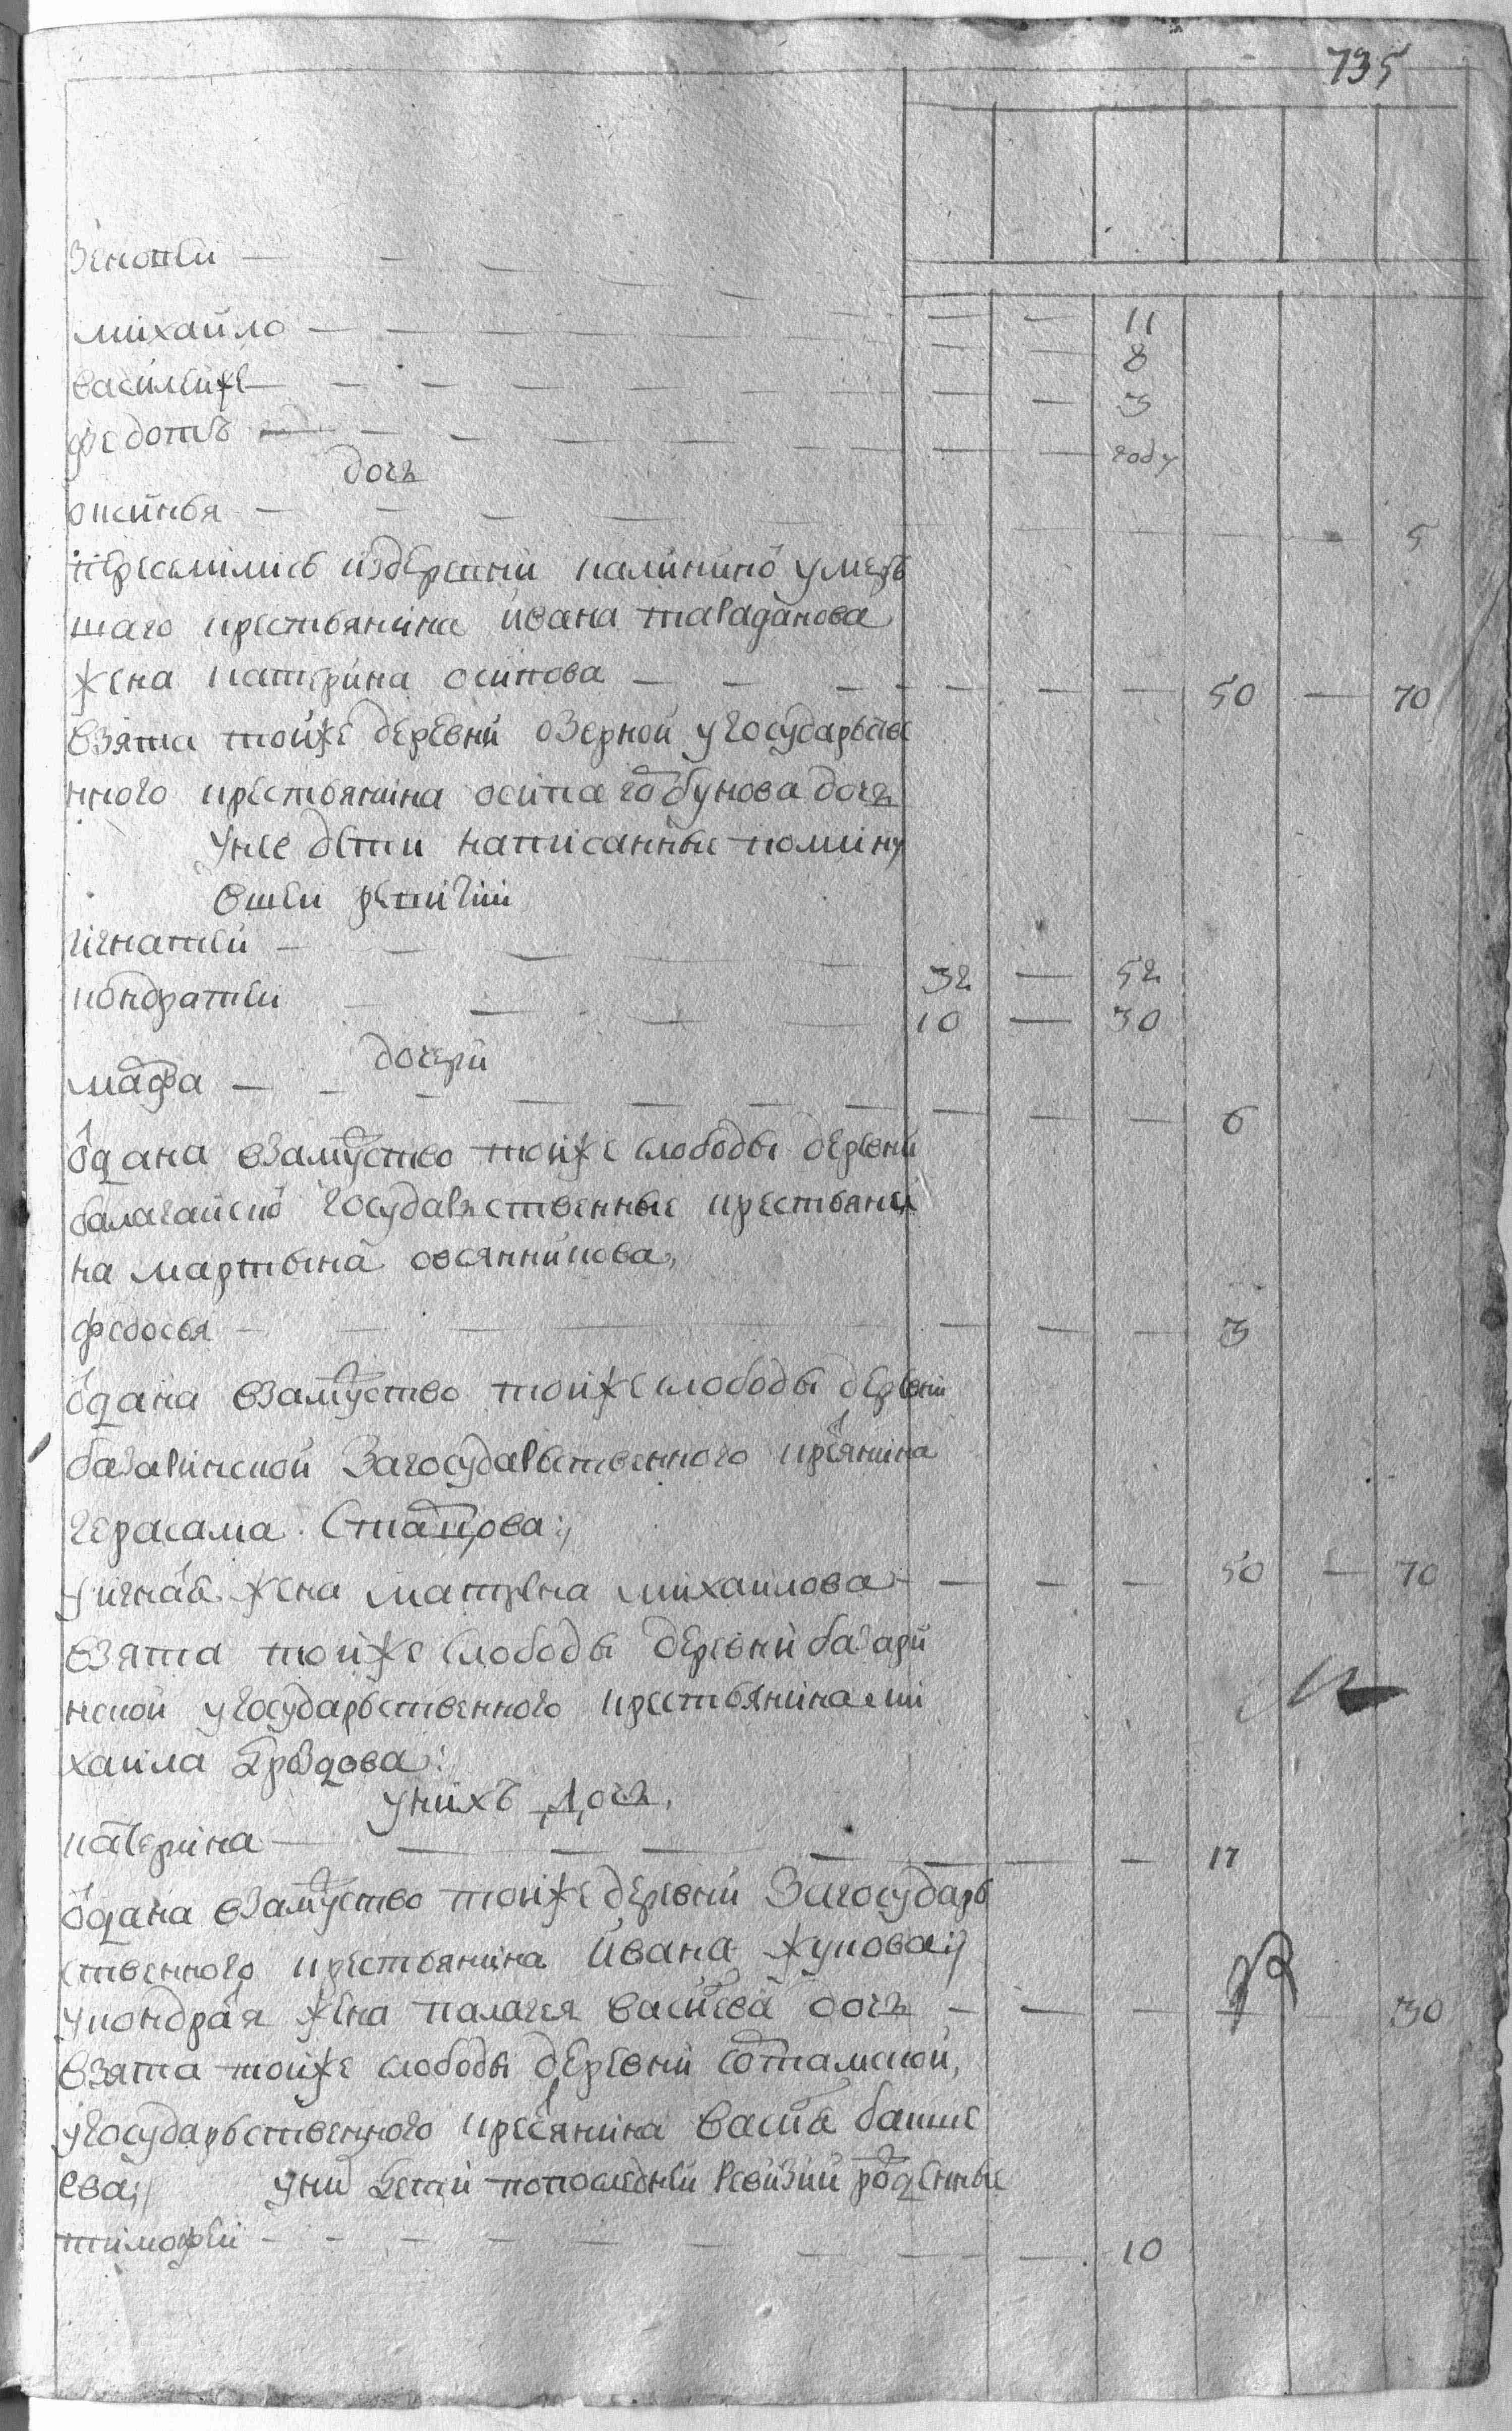 735
Зенотеи — — — — 11
михайло — — — — 8
василейже — — — — 3
федотъ — — — — году
дочь
оксинья — — — — 5
переселились издеревни калининой умеръ
шаго крестьянина ивана
жена катерина осипова — — — 50 — 70
взята тойже деревни озерной угосударьстве
нного крестьянина осипа гобунова дочь
унее дети написанные помину
вшеи ревизии
игнатеи — — — 32 — 52
кондратеи — — — 10 — 30
дочери
мафа — — — — 6
одана взамуство тойже слободы деревни
балагайской государственные крестьяни
на мартына овсянникова,
федосья — — — — 3
одана взамуство тойже слободы деревни
базаринской Загосударственного кресянина
герасама Стапцова:
уигнатя жена матрена михаилова — — — 50 — 70
взята тойже слободы деревни базари
нской угосударьственного крестьянина ми
хаила
унихъ дочь,
катерина — — — — 17
одана взамуство тойже деревни Загосударь
ственного крестьянина ивана жукова:
укондратя жена палагея васиева дочь — — — — 30
взята тойже слободы деревни
угосударьственного кресянина васиа бакше
ева// уни дети попоследней Ревизии роденные
тимофеи — — — — 10